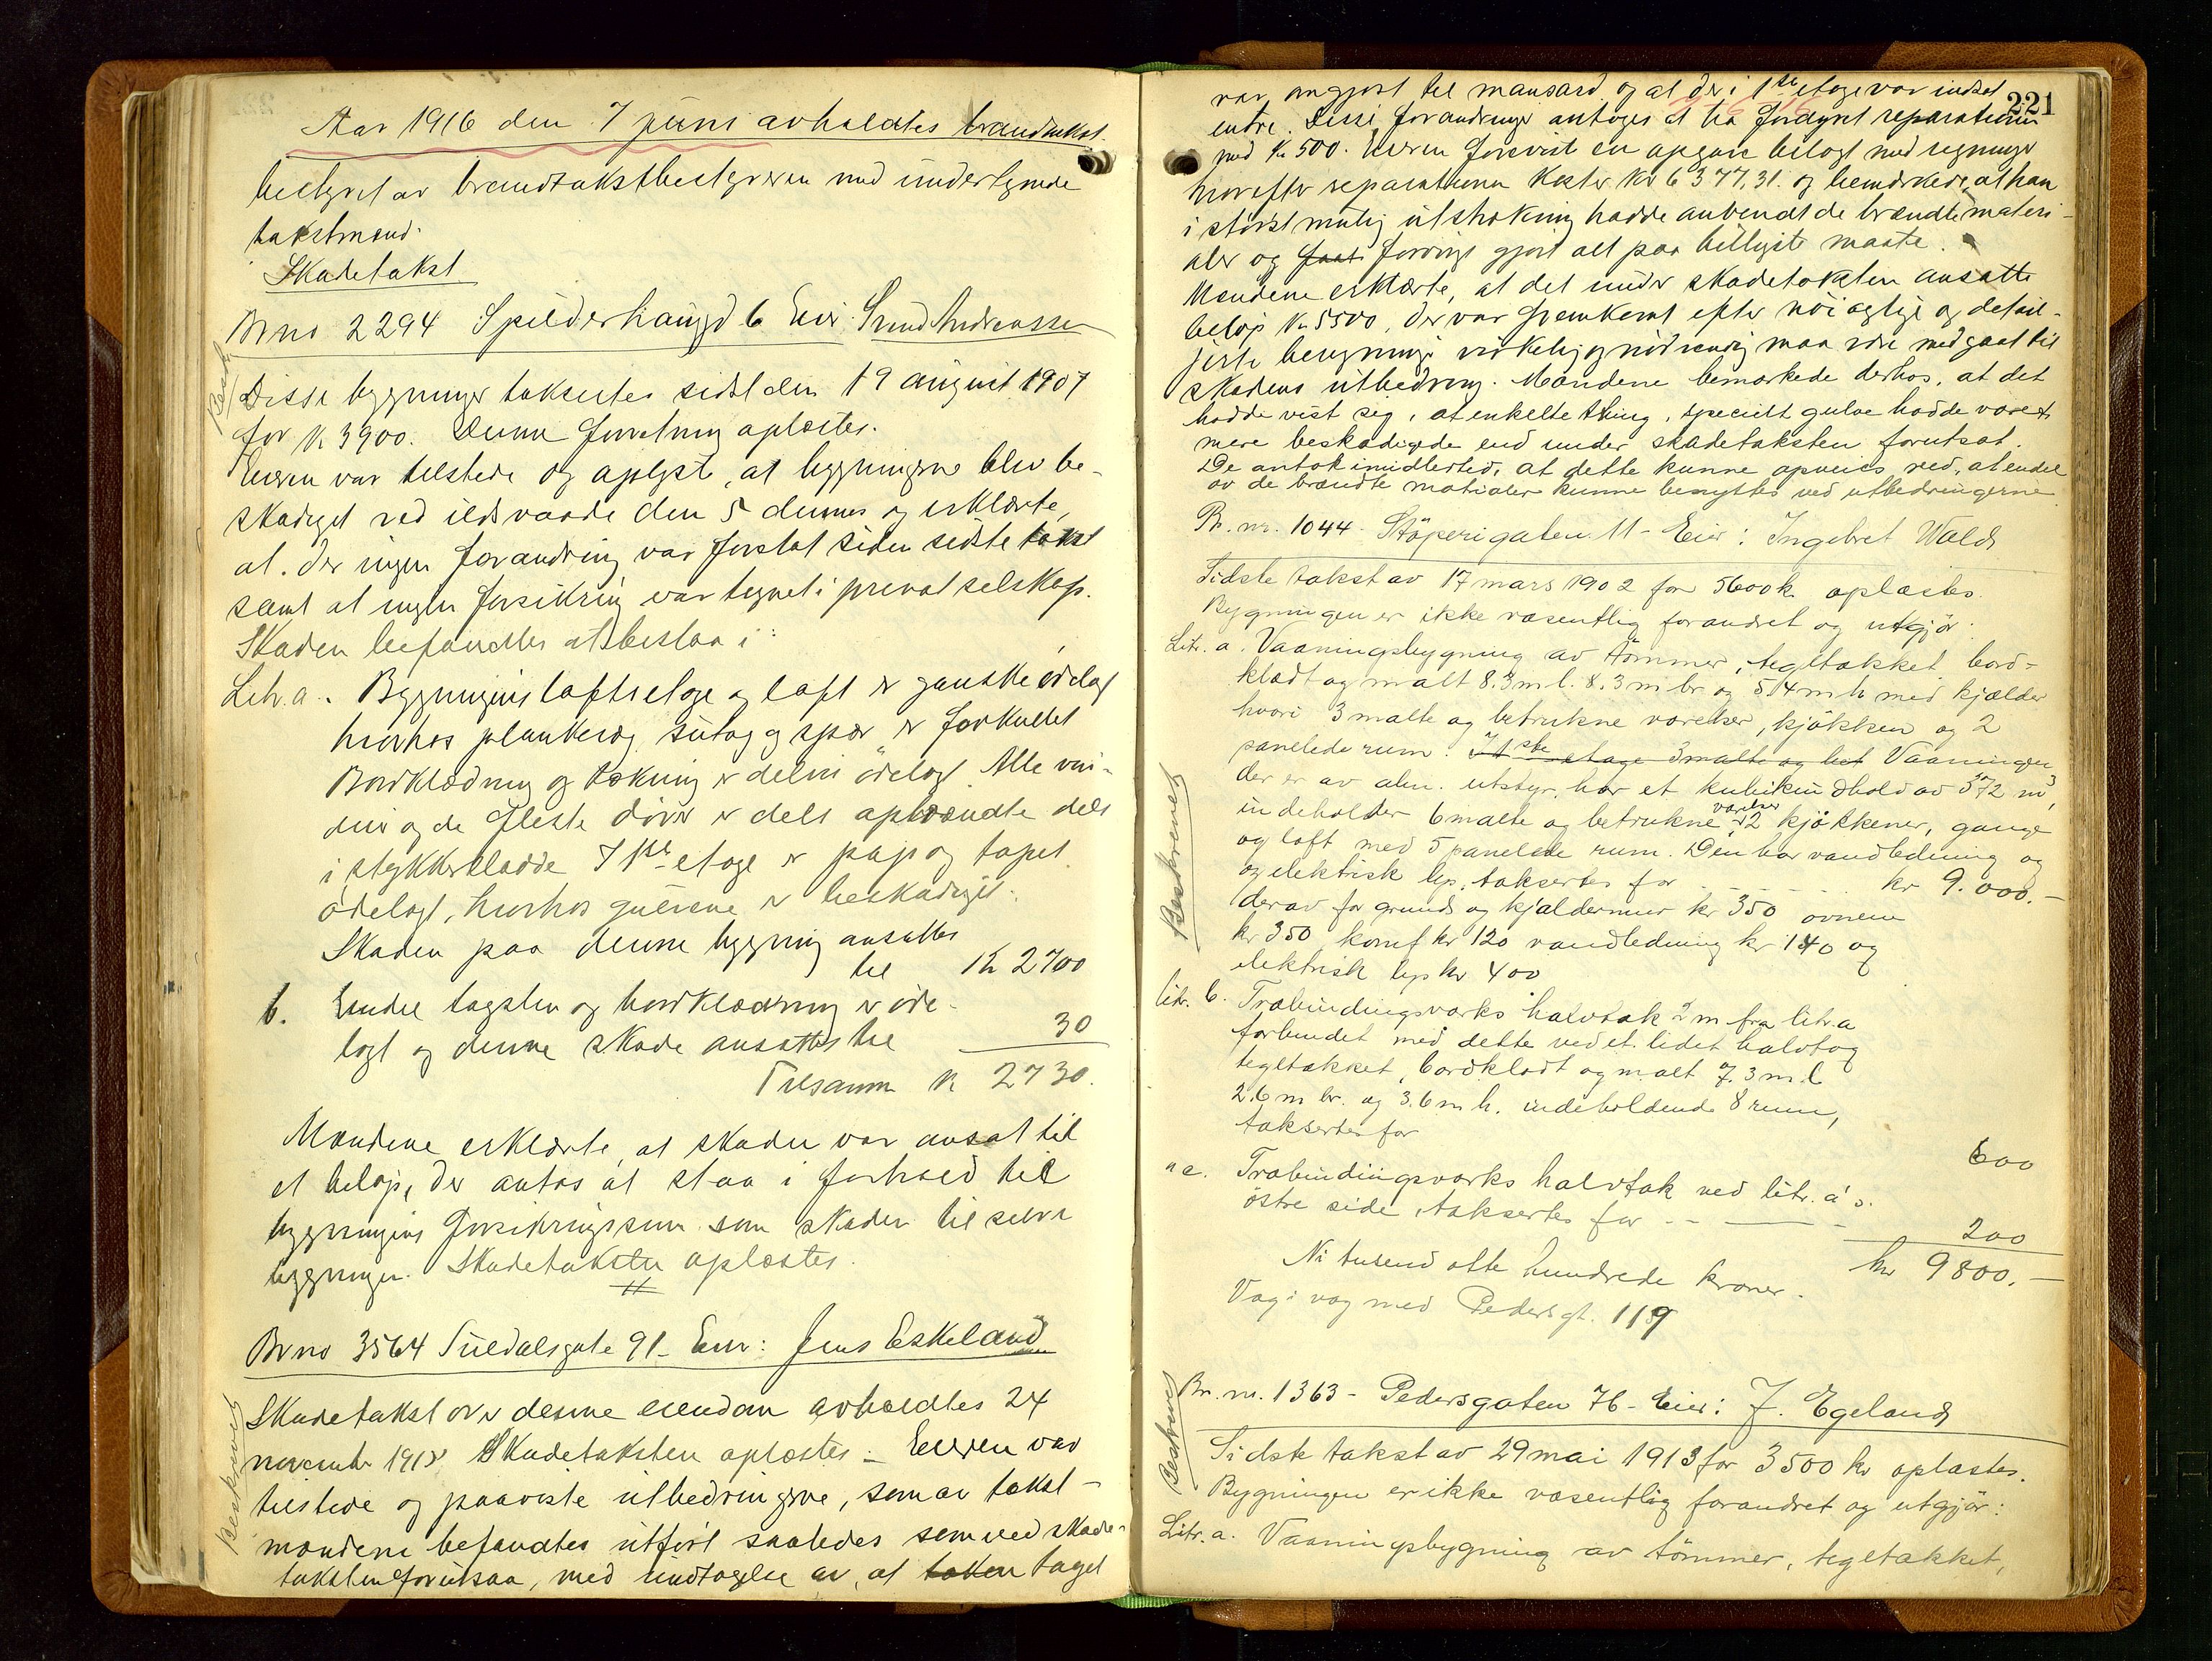 Aar 1916 den 7 juni avholdtes brandtakst
bestyret av brandtakstbestyreren med undertegnede
takstmænd.
Skadetakst
Br no 2294 Spilderhaugd 6 Eier: Svend Andreassen
Beskr
Disse bygninger taksertes sidst den 19 august 1907
for Kr 3900. Denne forretning oplæstes.
Eieren var tilstede og oplyste, at bygningerne blev be-
skadiget ved ildsvaade den 5 dennes og erklærte,
at der ingen forandring var foretat siden sidste takst
samt at ingen forsikring var tegnet i privat selskap.
Skaden befandtes at bestaa i:
Litr. a. Bygningens loftsetage og loft er ganske ødelagt
hvorhos plankevæg, sutag og spær er forkullet
Bordklædning og tækning er delvis ødelagt. Alle vin-
duer og de fleste dører er dels opbrændte dels
istykkerslaade I 1ste etage er pap og tapet
ødelagt, hvorhos gulvene er beskadiget.
Skaden paa denne bygning ansattes
til Kr 2700
b. Endel tagsten og bordklædning er øde-
lagt og denne skade ansattes til 30
Tilsamm Kr 2730.
Mændene erklærte, at skaden var ansat til
et beløp, der antas at staa i forhold til
bygningens forsikringssum som skaden til selve
bygningen. Skadetaksten oplæstes.
Br no 3564 Suldalsgate 91 - Eier: Jens Eskeland
Beskrevet
Skadetakst over denne eiendom avholdtes 24
november 1915 Skadetaksten oplæstes - Eieren var
tilstede og paaviste utbedringerne, som av takst-
mændene befandtes utført saaledes som ved skade-
taksten forutsaa, med undtagelse av, at taken taget
221
var omgjort til mansard og at der i 1ste etage var indsat
entre. Disse forandringer antoges at ha fordyret reparationen
med Kr 500. Eieren foreviste en opgave belagt med regninger
hvorefter reparationen koster Kr 6377,31. og bemærkede, at han
i størst mulig utstrækning hadde anvendt de brændte materi-
aler og faat forøvrigt gjort alt paa billigste maate.
Mændene erklærte, at det under skadetaksten ansatte
beløp Kr 5500, der var fremkomt efter nøiagtige og detail-
jerte beregninger virkelig og nødvendig maa være medgaat til
skadens utbedring. Mændene bemærkede derhos, at det
hadde vist sig, at enkelte ting, specielt gulve hadde været
mere beskadigede end under skadetaksten forutsat.
De antok imidlertid, at dette kunne opveies ved, at endel
av de brændte matrialer kunne benyttes ved utbedringerne
Br. nr. 1044 - Støperigaten 11 - Eier: Ingebret Wald
Beskrevet
Sidste takst av 17 mars 1902 for 5600 k. oplæstes.
Bygningen er ikke væsentlig forandret og utgjør:
Litr. a. Vaaningsbygning av tømmer, tegltækket, bord-
klædt og malt 8.3 m l. 8.3 m br. og 5.4 m h med kjælder
hvori 3 malte og betrukne værelser, kjøkken og 2
panelede rum. I 1ste etage 3 malte og bet Vaaningen
der er av alm. utstyr, har et kubikindhold av 372 m³,
indeholder 6 malte og betrukne værelser, 2 kjøkkener, gange
og loft med 5 panelede rum. Den har vandledning og
og elektrisk lys, taksertes for - - - - - kr 9.000.-
derav for grund og kjældermur kr 350 ovnene
kr 350 komf kr 120 vandledning kr 140 og
elektrisk lys kr 400
Litr. b. Træbindingsværks halvtak 2 m fra litr. a
forbundet med dette ved et lidet halvtag
tegltækket, bordklædt og malt 7.3 m l
2.6 m br. og 3.6 m h. indeholdende 8 rum,
taksertes for 600
" c. Træbindingsværks halvtak ved litr. a's
østre side, taksertes for - - 200
Ni tusend otte hundrede kroner. kr 9800.-
Væg i væg med Pedersgt. 119
Beskrevet
Br. nr. 1363 - Pedersgaten 76 - Eier: J. Egeland
Sidste takst av 29 mai 1913 for 3500 kr oplæstes.
Bygningen er ikke væsentlig forandret og utgjør:
Litr. a. Vaaningsbygning av tømmer, tegltækket,